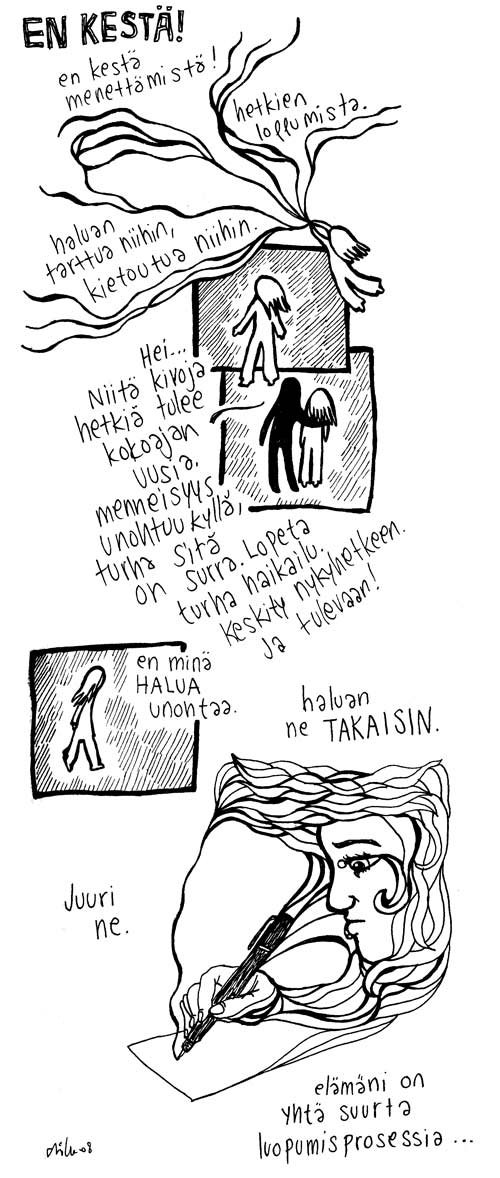 EN KESTÄ!
en kestä
menettämistä!
hetkien
loppumista.
haluan
tarttua niihin,
kietoutua niihin.
Hei...
Niitä kivoja
hetkiä tulee
kokoajan
uusia.
menneisyys
unohtuu kyllä,
turha sitä
on surra. Lopeta
turha haikailu.
keskity nykyhetkeen.
ja tulevaan!
en minä
HALUA
unohtaa.
haluan
ne TAKAISIN.
Juuri
ne.
elämäni on
yhtä suurta
luopumisprosessia...
08